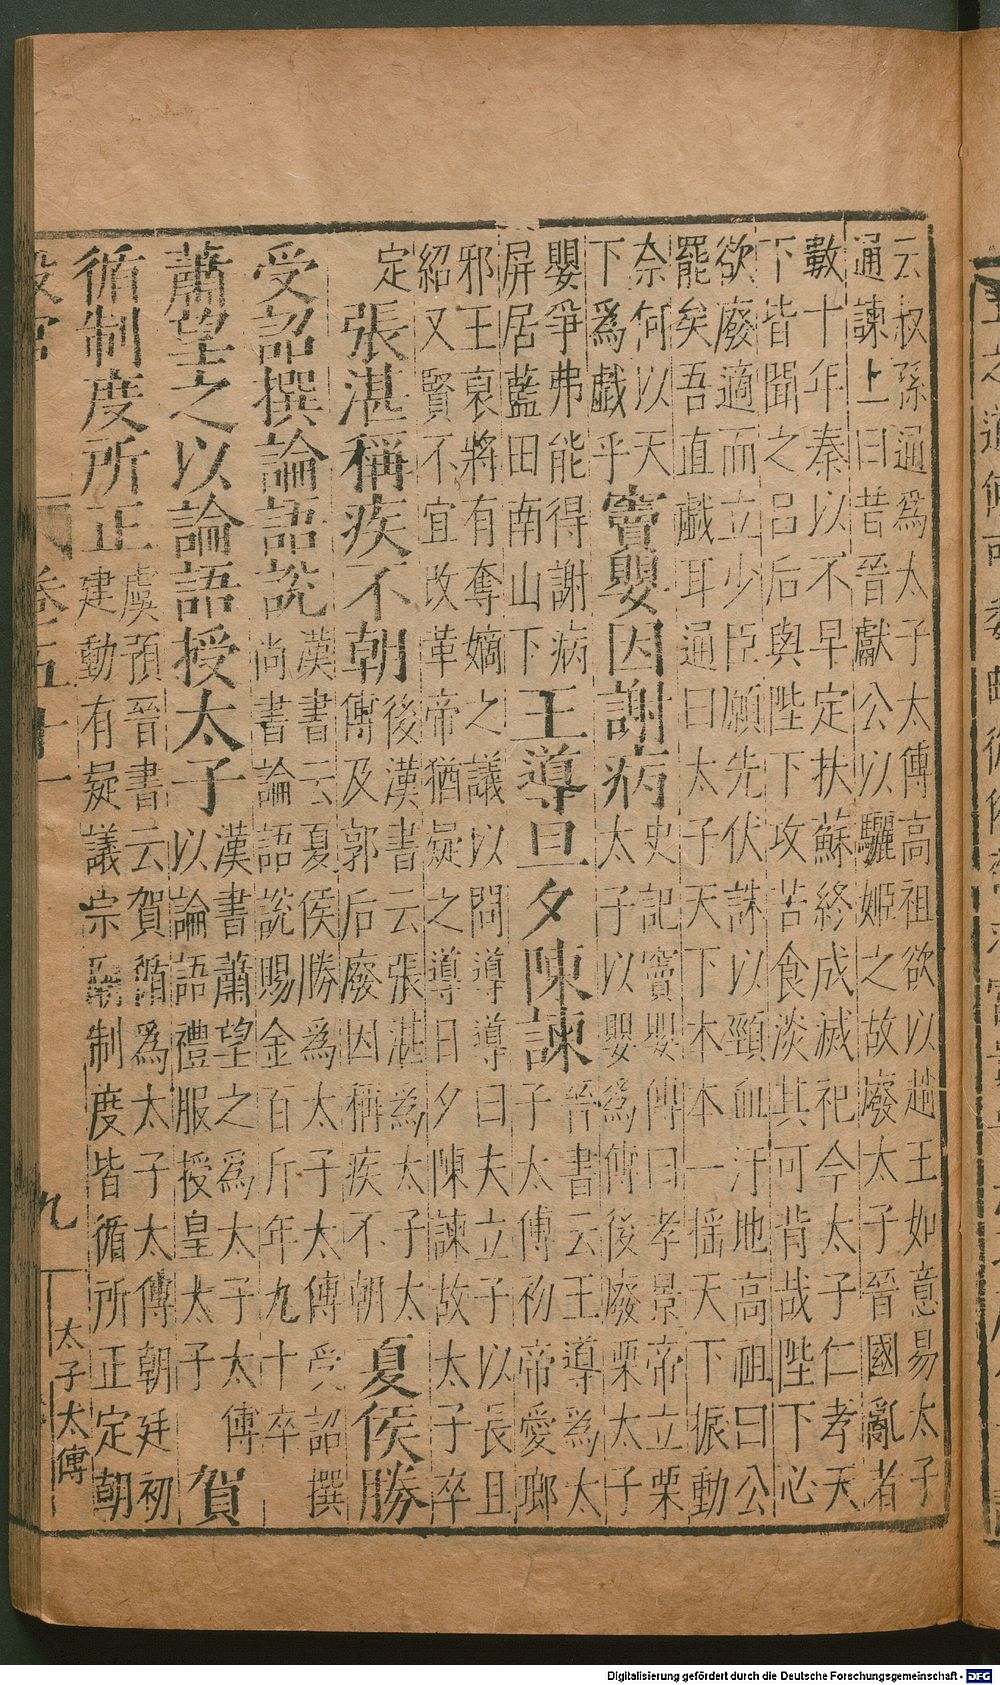 云叔孫通爲太子太傅高祖欲以趙王如意易太子
通諫上曰昔晉獻公以驪姬之故廢太子晉國亂者
數十年秦以不早定扶蘇終成滅祀今太子仁孝天
下皆聞之呂后與陛下攻苦食淡其可背哉陛下必
欲廢適而立少臣願先伏誅以頸血汙地高祖曰公
罷矣吾直戲耳通曰太子天下本本一搖天下振動
奈何以天
下爲戲乎
竇嬰因謝病
史記竇嬰傳曰孝景帝立栗
太子以嬰爲傅後廢栗太子
嬰爭弗能得謝病
屏居藍田南山下
王導旦夕陳諫
晉書云王導爲太
子太傅初帝愛瑯
邪王裒將有奪嫡之議以問導導曰夫立子以長且
紹又賢不宜改革帝猶疑之導日夕陳諫故太子卒
定
張湛稱疾不朝
後漢書云張湛爲太子太
傅及郭后廢因稱疾不朝
夏侯勝
受詔撰論語說
漢書云夏侯勝爲太子太傅受詔撰
尚書論語說賜金百斤年九十卒
蕭望之以論語授太子
漢書蕭望之爲太子太傅
以論語禮服授皇太子
賀
循制度所正
虞預晉書云賀循爲太子太傅朝廷初
建動有疑議宗廟制度皆循所正定朝
卷五十一
九
太子太傅
Digitalisierung gefördert durch die Deutsche Forschungsgemeinschaft - DFG